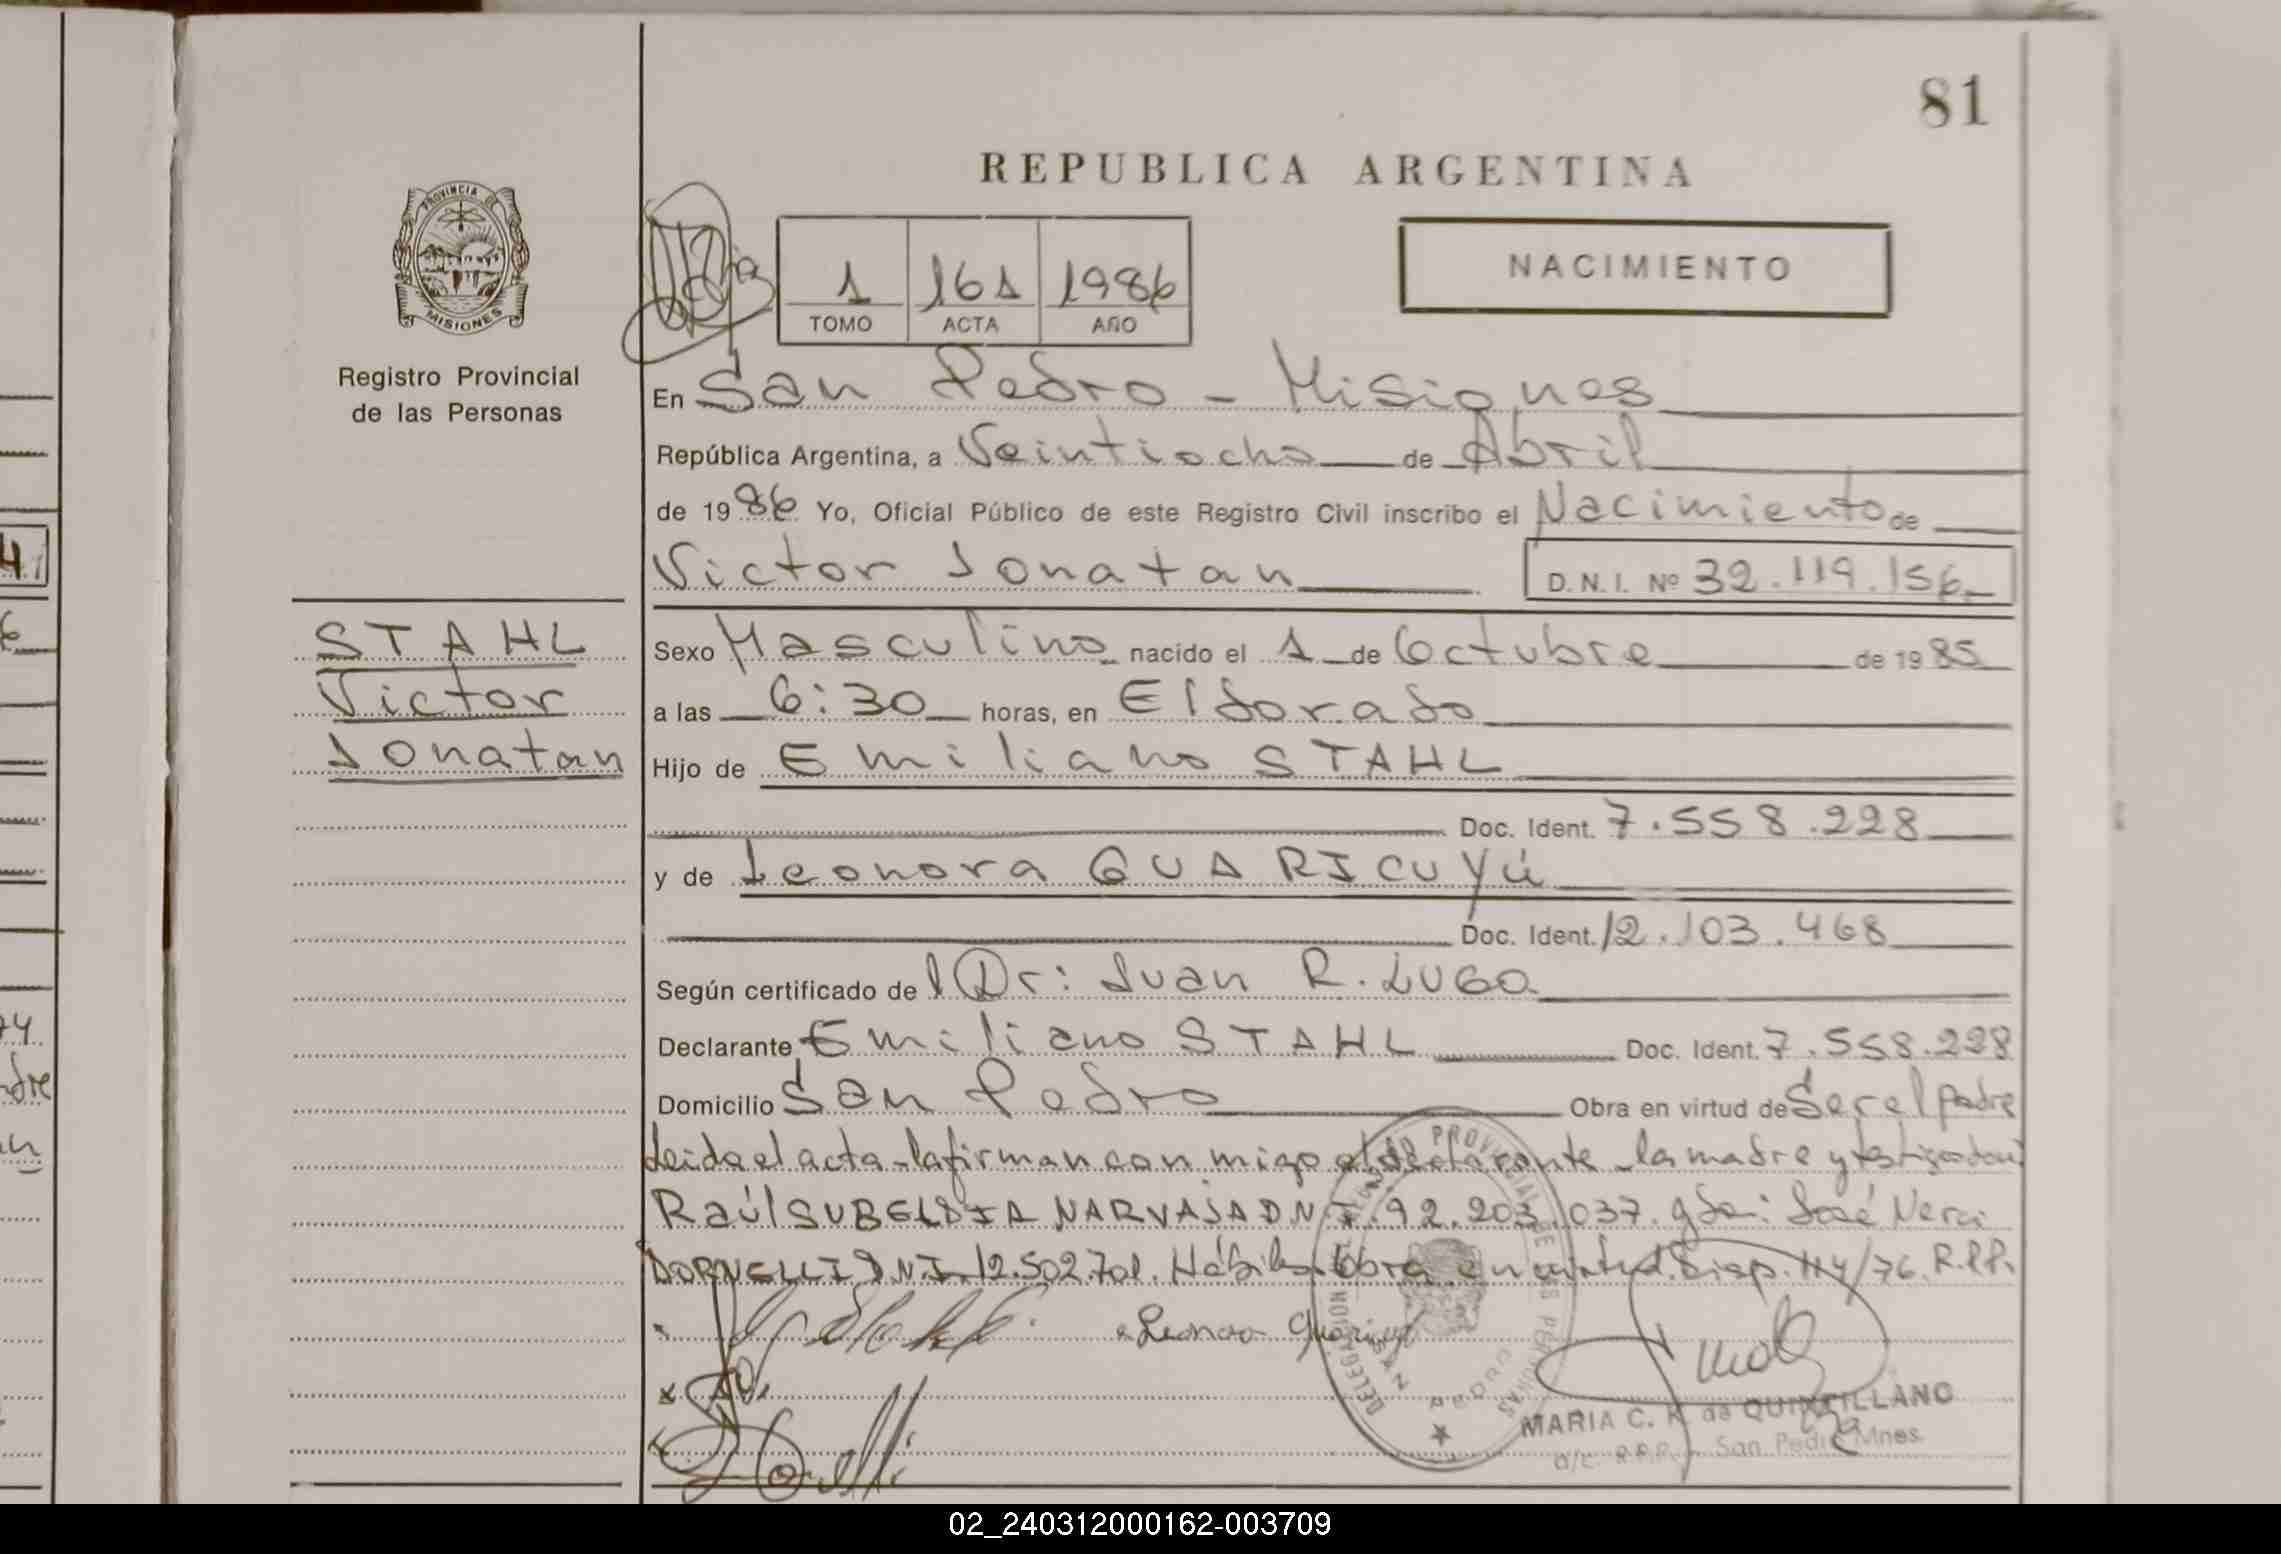 81
REPUBLICA ARGENTINA
PROVINCIA DE
MISIONES
Registro Provincial
de las Personas
1 161 1986
TOMO ACTA AÑO
NACIMIENTO
En San Pedro - Misiones
República Argentina, a Veintiocho de Abril
de 1986 Yo, Oficial Público de este Registro Civil inscribo el Nacimiento de
Victor Jonatan D.N.I. Nº 32.119.156
STAHL
Victor
Jonatan
Sexo Masculino nacido el 1 de Octubre de 1985
a las 6:30 horas, en Eldorado
Hijo de Emiliano STAHL
Doc. Ident. 7.558.228
y de Leonora GUARICUYú
Doc. Ident. 12.103.468
Según certificado del Dr: Juan R. LUGO
Declarante Emiliano STAHL Doc. Ident. 7.558.228
Domicilio San Pedro Obra en virtud de Ser el padre
Leida el acta la firman con migo el declarante la madre y testigos
Raúl SUBELDIA NARVAJA DNI. 92.203.037. José
DORNELLI DNI. 12.502.701. Hábiles. Obra en virtud Disp. 114/76. R.P.P.
Leonora
DELEGACION REGISTRO PROVINCIAL DE LAS PERSONAS
SAN PEDRO
MARIA C. K. de QUINTILLANO
a/c. R.P.P. San Pedro Mnes.
02_240312000162-003709